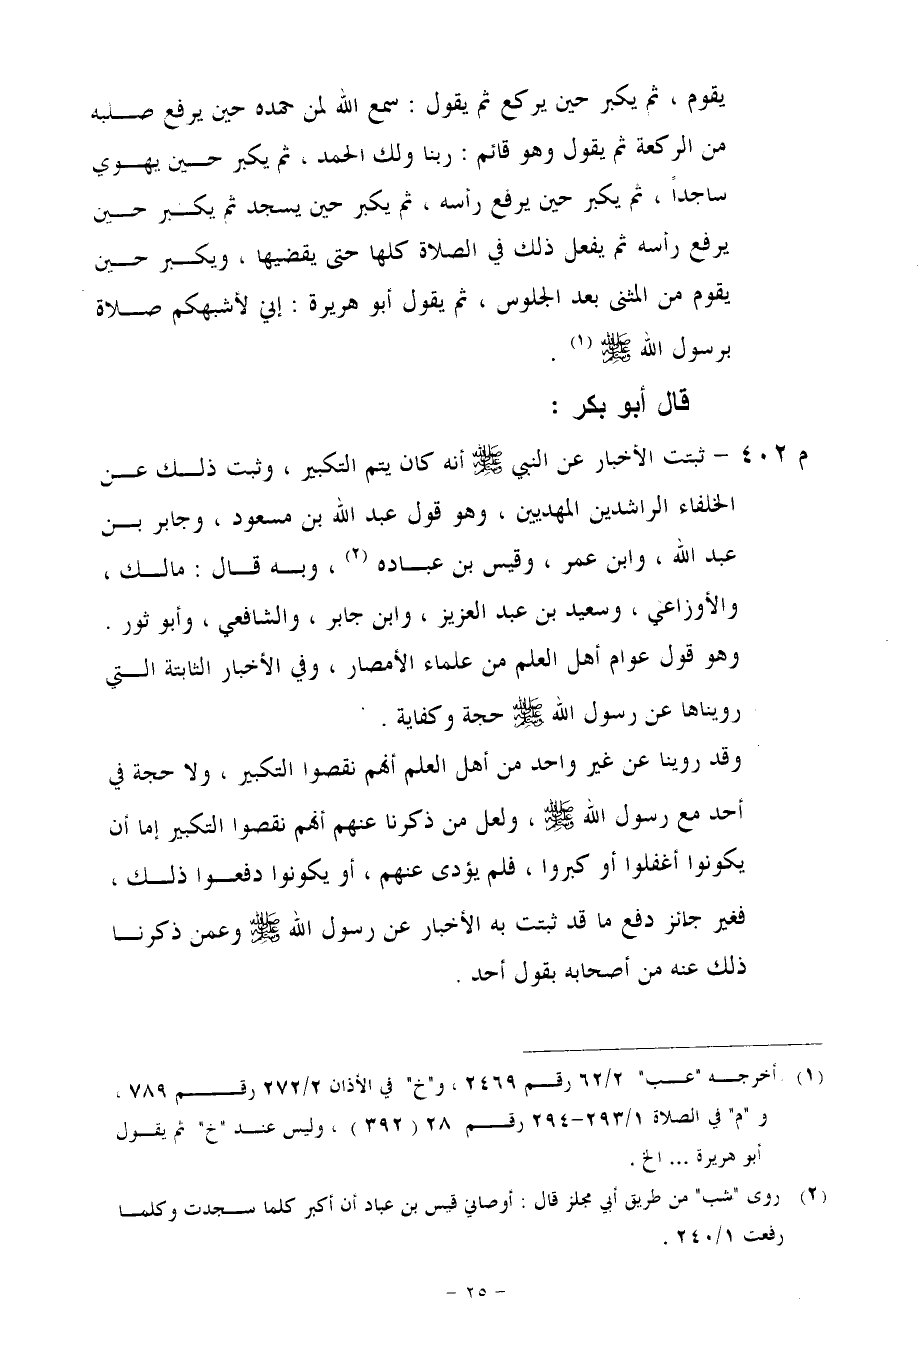 يقوم ، ثم يكبر حين يركع ثم يقول : سمع الله لمن حمده حين يرفع صلبه
من الركعة ثم يقول وهو قائم : ربنا ولك الحمد ، ثم يكبر حين يهوي
ساجداً ، ثم يكبر حين يرفع رأسه ، ثم يكبر حين يسجد ثم يكبر حين
يرفع رأسه ثم يفعل ذلك في الصلاة كلها حتى يقضيها ، ويكبر حين
يقوم من المثنى بعد الجلوس ، ثم يقول أبو هريرة : إني لأشبهكم صلاة
برسول الله ﷺ (١) .
قال أبو بكر :
م ٤٠٢ – ثبتت الأخبار عن النبي ﷺ أنه كان يتم التكبير ، وثبت ذلك عن
الخلفاء الراشدين المهديين ، وهو قول عبد الله بن مسعود ، وجابر بن
عبد الله ، وابن عمر ، وقيس بن عباده (٢) ، وبه قال : مالك ،
والأوزاعي ، وسعيد بن عبد العزيز ، وابن جابر ، والشافعي ، وأبو ثور .
وهو قول عوام أهل العلم من علماء الأمصار ، وفي الأخبار الثابتة التي
رويناها عن رسول الله ﷺ حجة وكفاية .
وقد روينا عن غير واحد من أهل العلم أنهم نقصوا التكبير ، ولا حجة في
أحد مع رسول الله ﷺ ، ولعل من ذكرنا عنهم أنهم نقصوا التكبير إما أن
يكونوا أغفلوا أو كبروا ، فلم يؤدى عنهم ، أو يكونوا دفعوا ذلك ،
فغير جائز دفع ما قد ثبتت به الأخبار عن رسول الله ﷺ وعمن ذكرنا
ذلك عنه من أصحابه بقول أحد .
(١) أخرجه "عب" ٦٢/٢ رقم ٢٤٦٩ ، و"خ" في الأذان ٢٧٢/٢ رقم ٧٨٩ ،
و "م" في الصلاة ٢٩٣/١–٢٩٤ رقم ٢٨ ( ٣٩٢ ) ، وليس عند "خ" ثم يقول
أبو هريرة ... الخ .
(٢) روى "شب" من طريق أبي مجلز قال : أوصاني قيس بن عباد أن أكبر كلما سجدت وكلما
رفعت ٢٤٠/١ .
– ٢٥ –